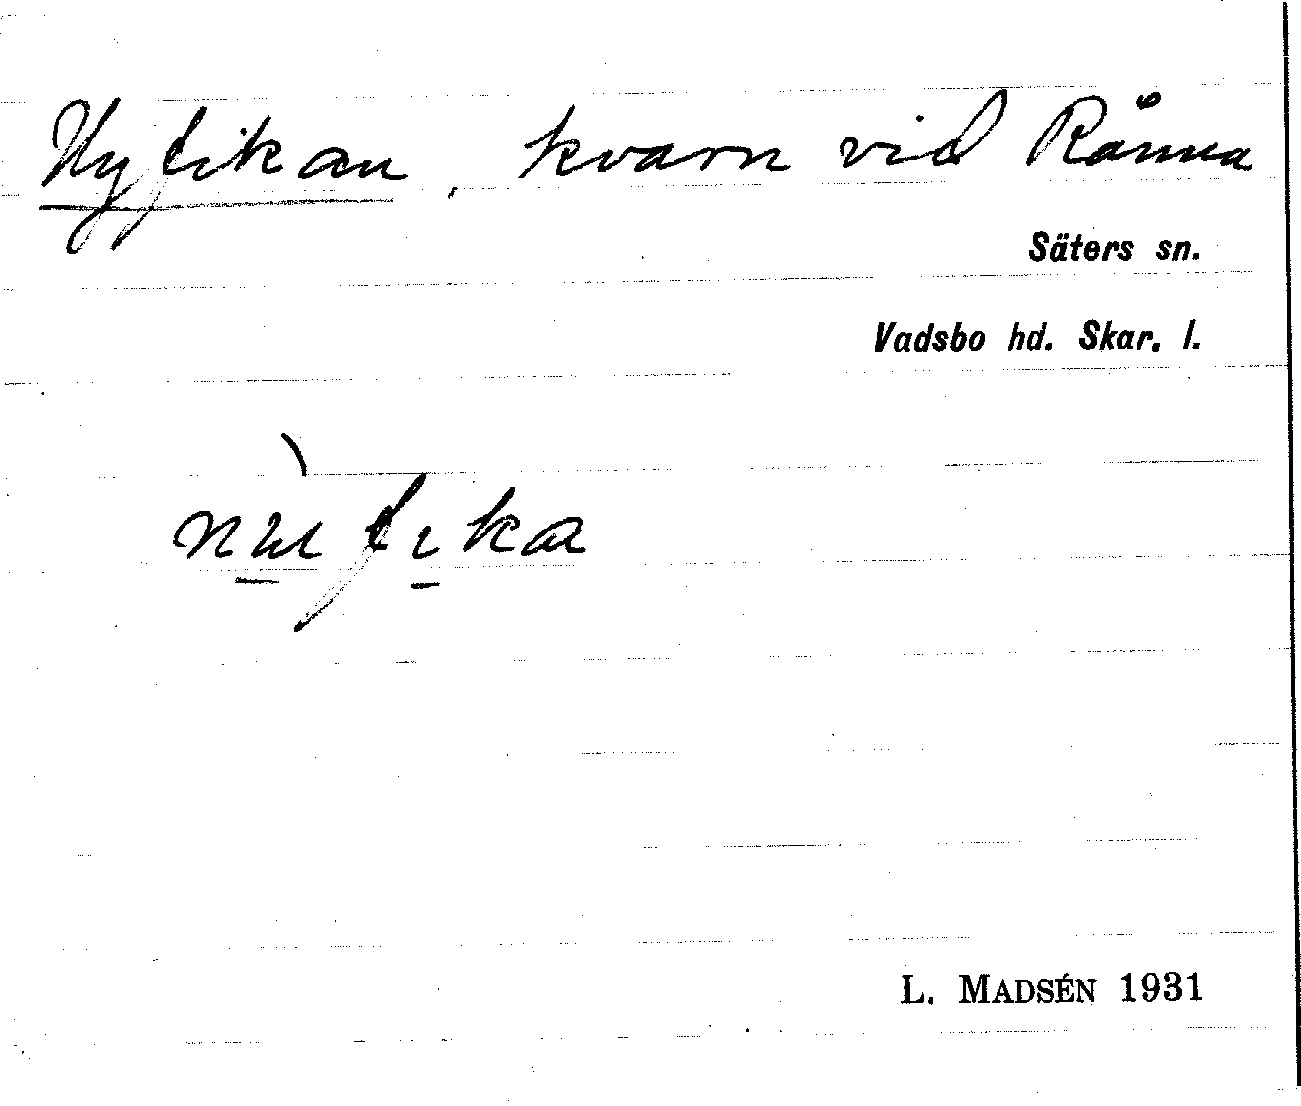 Nyfikan, kvarn vid Rånna
Säters sn.
Vadsbo hd. Skar. l.
L. MADSÉN 1931